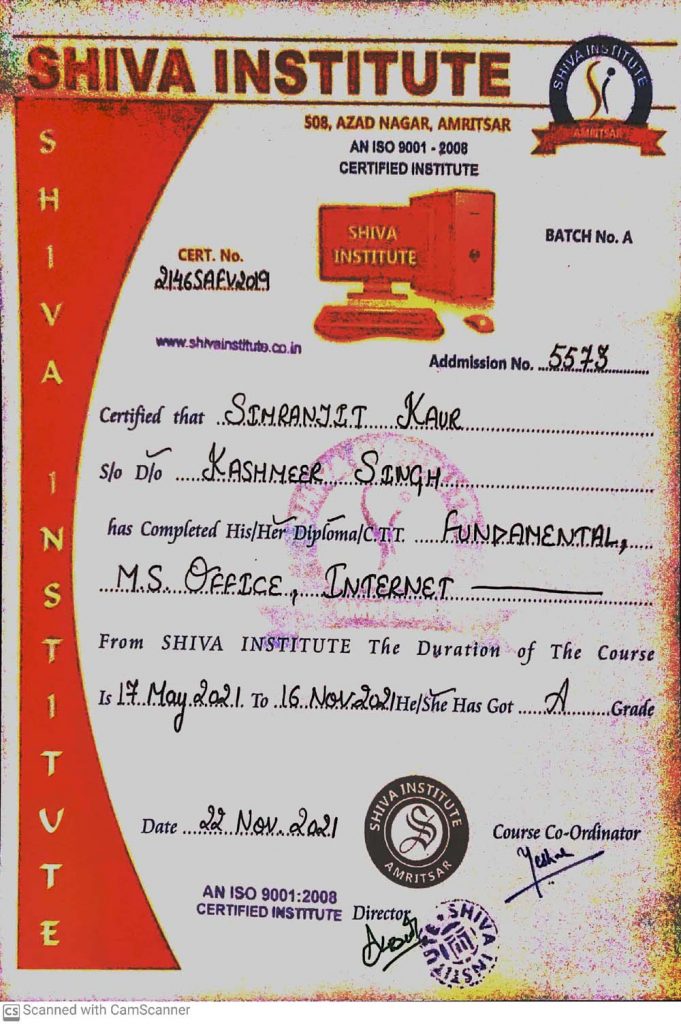 SHIVA INSTITUTE
SHIVA INSTITUTE
AMRITSAR
508, AZAD NAGAR, AMRITSAR
AN ISO 9001 - 2008
CERTIFIED INSTITUTE
SHIVA INSTITUTE
SHIVA
INSTITUTE
BATCH No. A
CERT. No.
2146SAFV2019
www.shivainstitute.co.in
Addmission No. 5573
Certified that SIMRANJIT KAUR
S/o D/o KASHMEER SINGH
has Completed His/Her Diploma/C.T.T. FUNDAMENTAL,
M.S. OFFICE, INTERNET
From SHIVA INSTITUTE The Duration of The Course
Is 17 May 2021 To 16 Nov.2021 He/She Has Got A Grade
Date 22 Nov. 2021
SHIVA INSTITUTE
AMRITSAR
Course Co-Ordinator
AN ISO 9001:2008
CERTIFIED INSTITUTE
Director
SHIVA INSTITUTE
CS Scanned with CamScanner